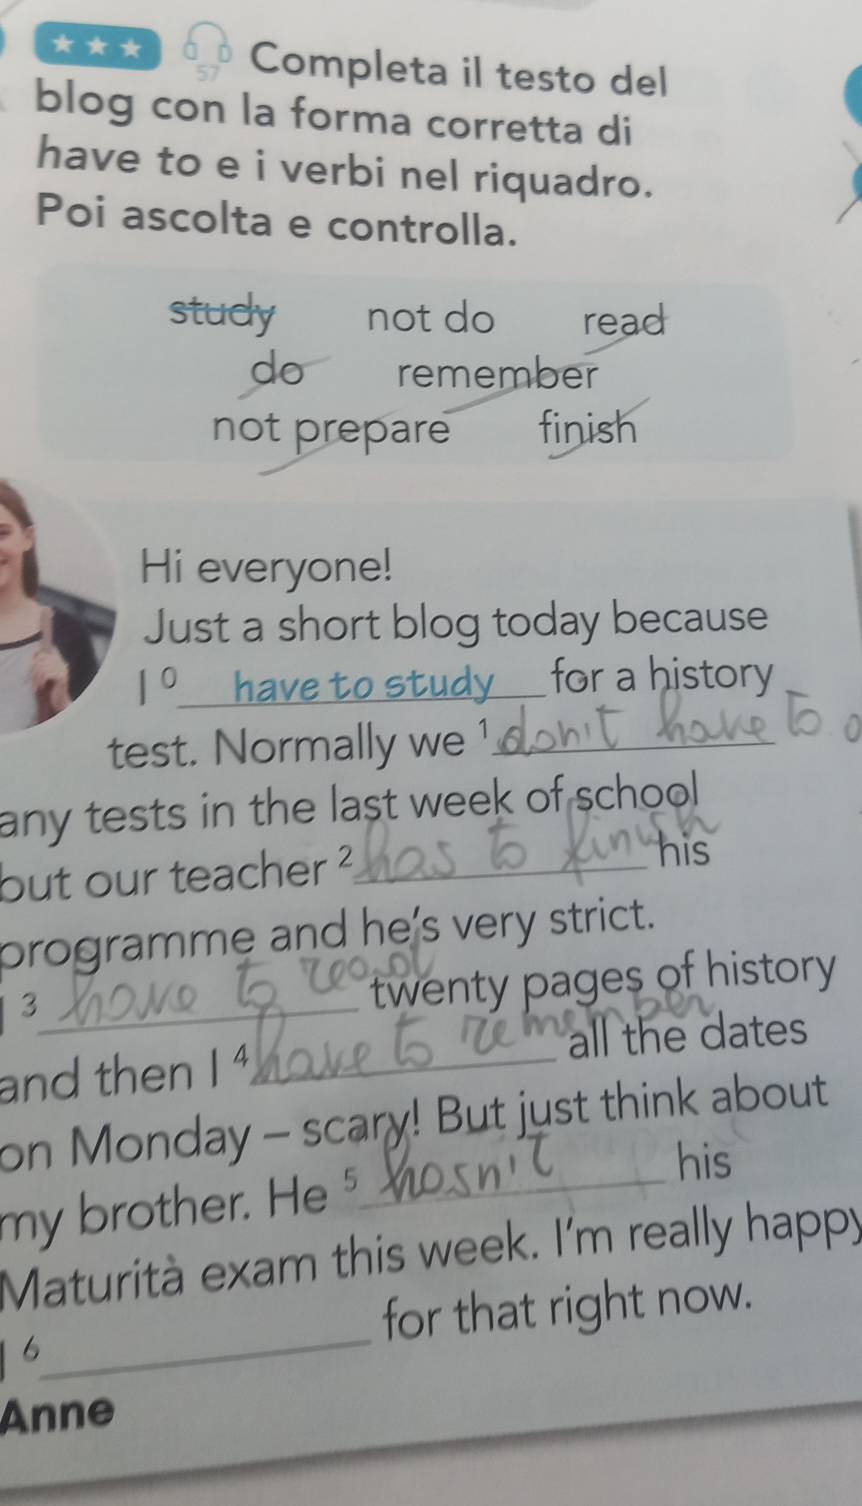 57 Completa il testo del
blog con la forma corretta di
have to e i verbi nel riquadro.
Poi ascolta e controlla.
study not do read
do remember
not prepare finish
Hi everyone!
Just a short blog today because
I 0 have to study for a history
test. Normally we 1 don't have to
any tests in the last week of school
but our teacher 2 has to finish his
programme and he's very strict.
I 3 have to read twenty pages of history
and then I 4 have to remember all the dates
on Monday – scary! But just think about
my brother. He 5 hasn't his
Maturità exam this week. I'm really happy
I 6 for that right now.
Anne